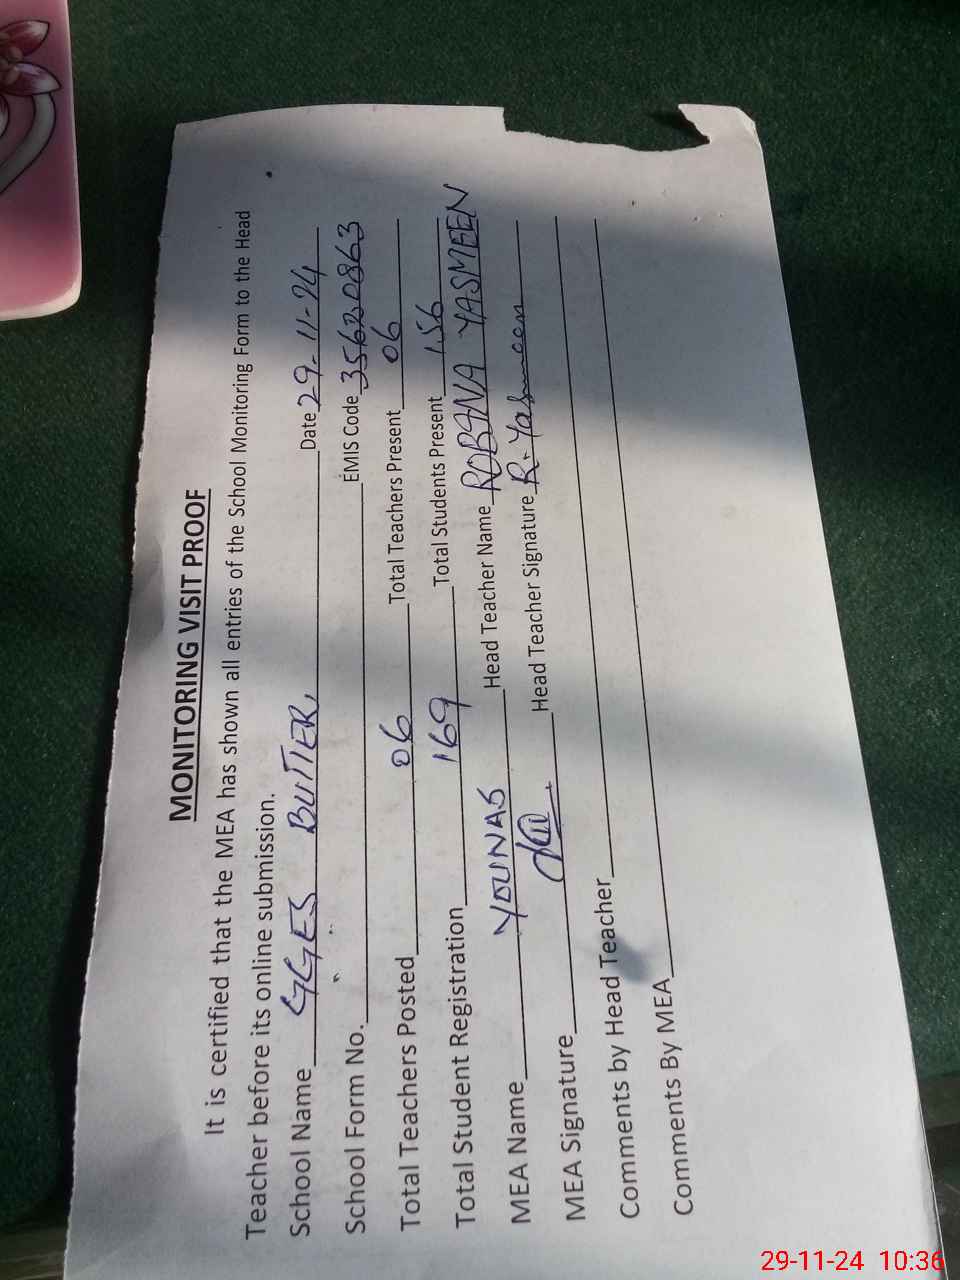 MONITORING VISIT PROOF
It is certified that the MEA has shown all entries of the School Monitoring Form to the Head
Teacher before its online submission.
School Name GGES BUTTER, Date 29-11-24
School Form No. EMIS Code 35620863
Total Teachers Posted 06 Total Teachers Present 06
Total Student Registration 169 Total Students Present 156
MEA Name YOUNAS Head Teacher Name ROBINA YASMEEN
MEA Signature Head Teacher Signature R. Yasmeen
Comments by Head Teacher
Comments By MEA
29-11-24 10:36